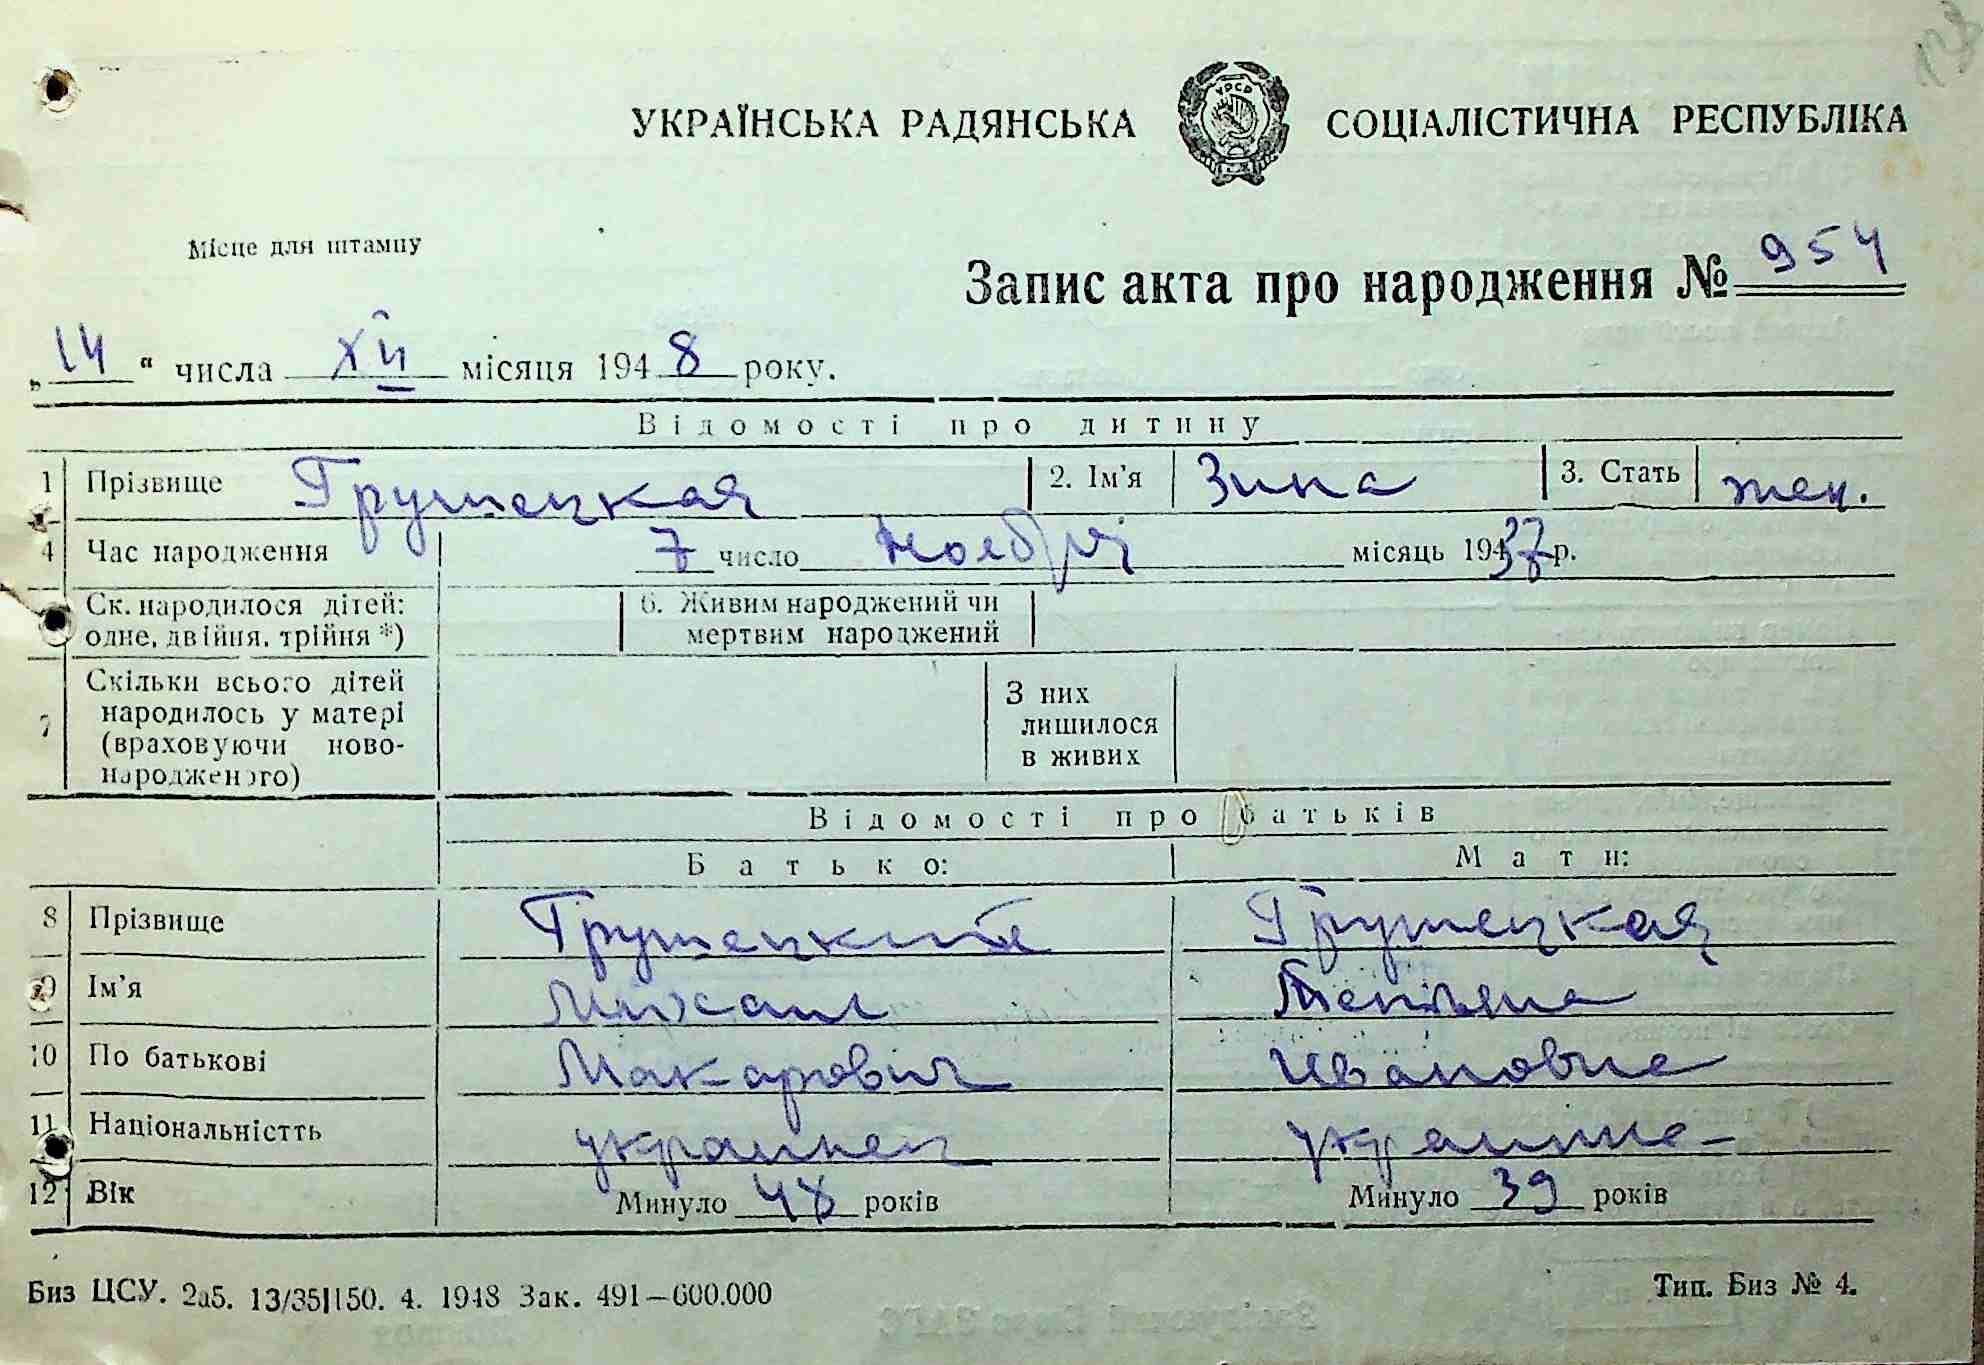 УКРАЇНСЬКА РАДЯНСЬКА СОЦІАЛІСТИЧНА РЕСПУБЛІКА
УРСР
Місце для штампу
Запис акта про народження № 954
„14“ числа XII місяця 1948 року.
Відомості про дитину
1 Прізвище Грушецкая 2. Ім'я Зина 3. Стать жен.
4 Час народження 7 число Ноября місяць 1937 р.
Ск. народилося дітей: 6. Живим народжений чи
одне, двійня, трійня *) мертвим народжений
Скільки всього дітей З них
7 народилось у матері лишилося
(враховуючи ново- в живих
народженого)
Відомості про батьків
Батько: Мати:
8 Прізвище Грушецкий Грушецкая
9 Ім'я Михаил Татьяна
10 По батькові Макарович Ивановна
11 Національністть украинец украинка
12 Вік Минуло 48 років Минуло 39 років
Биз ЦСУ. 2а5. 13/35|150. 4. 1948 Зак. 491—600.000 Тип. Биз № 4.